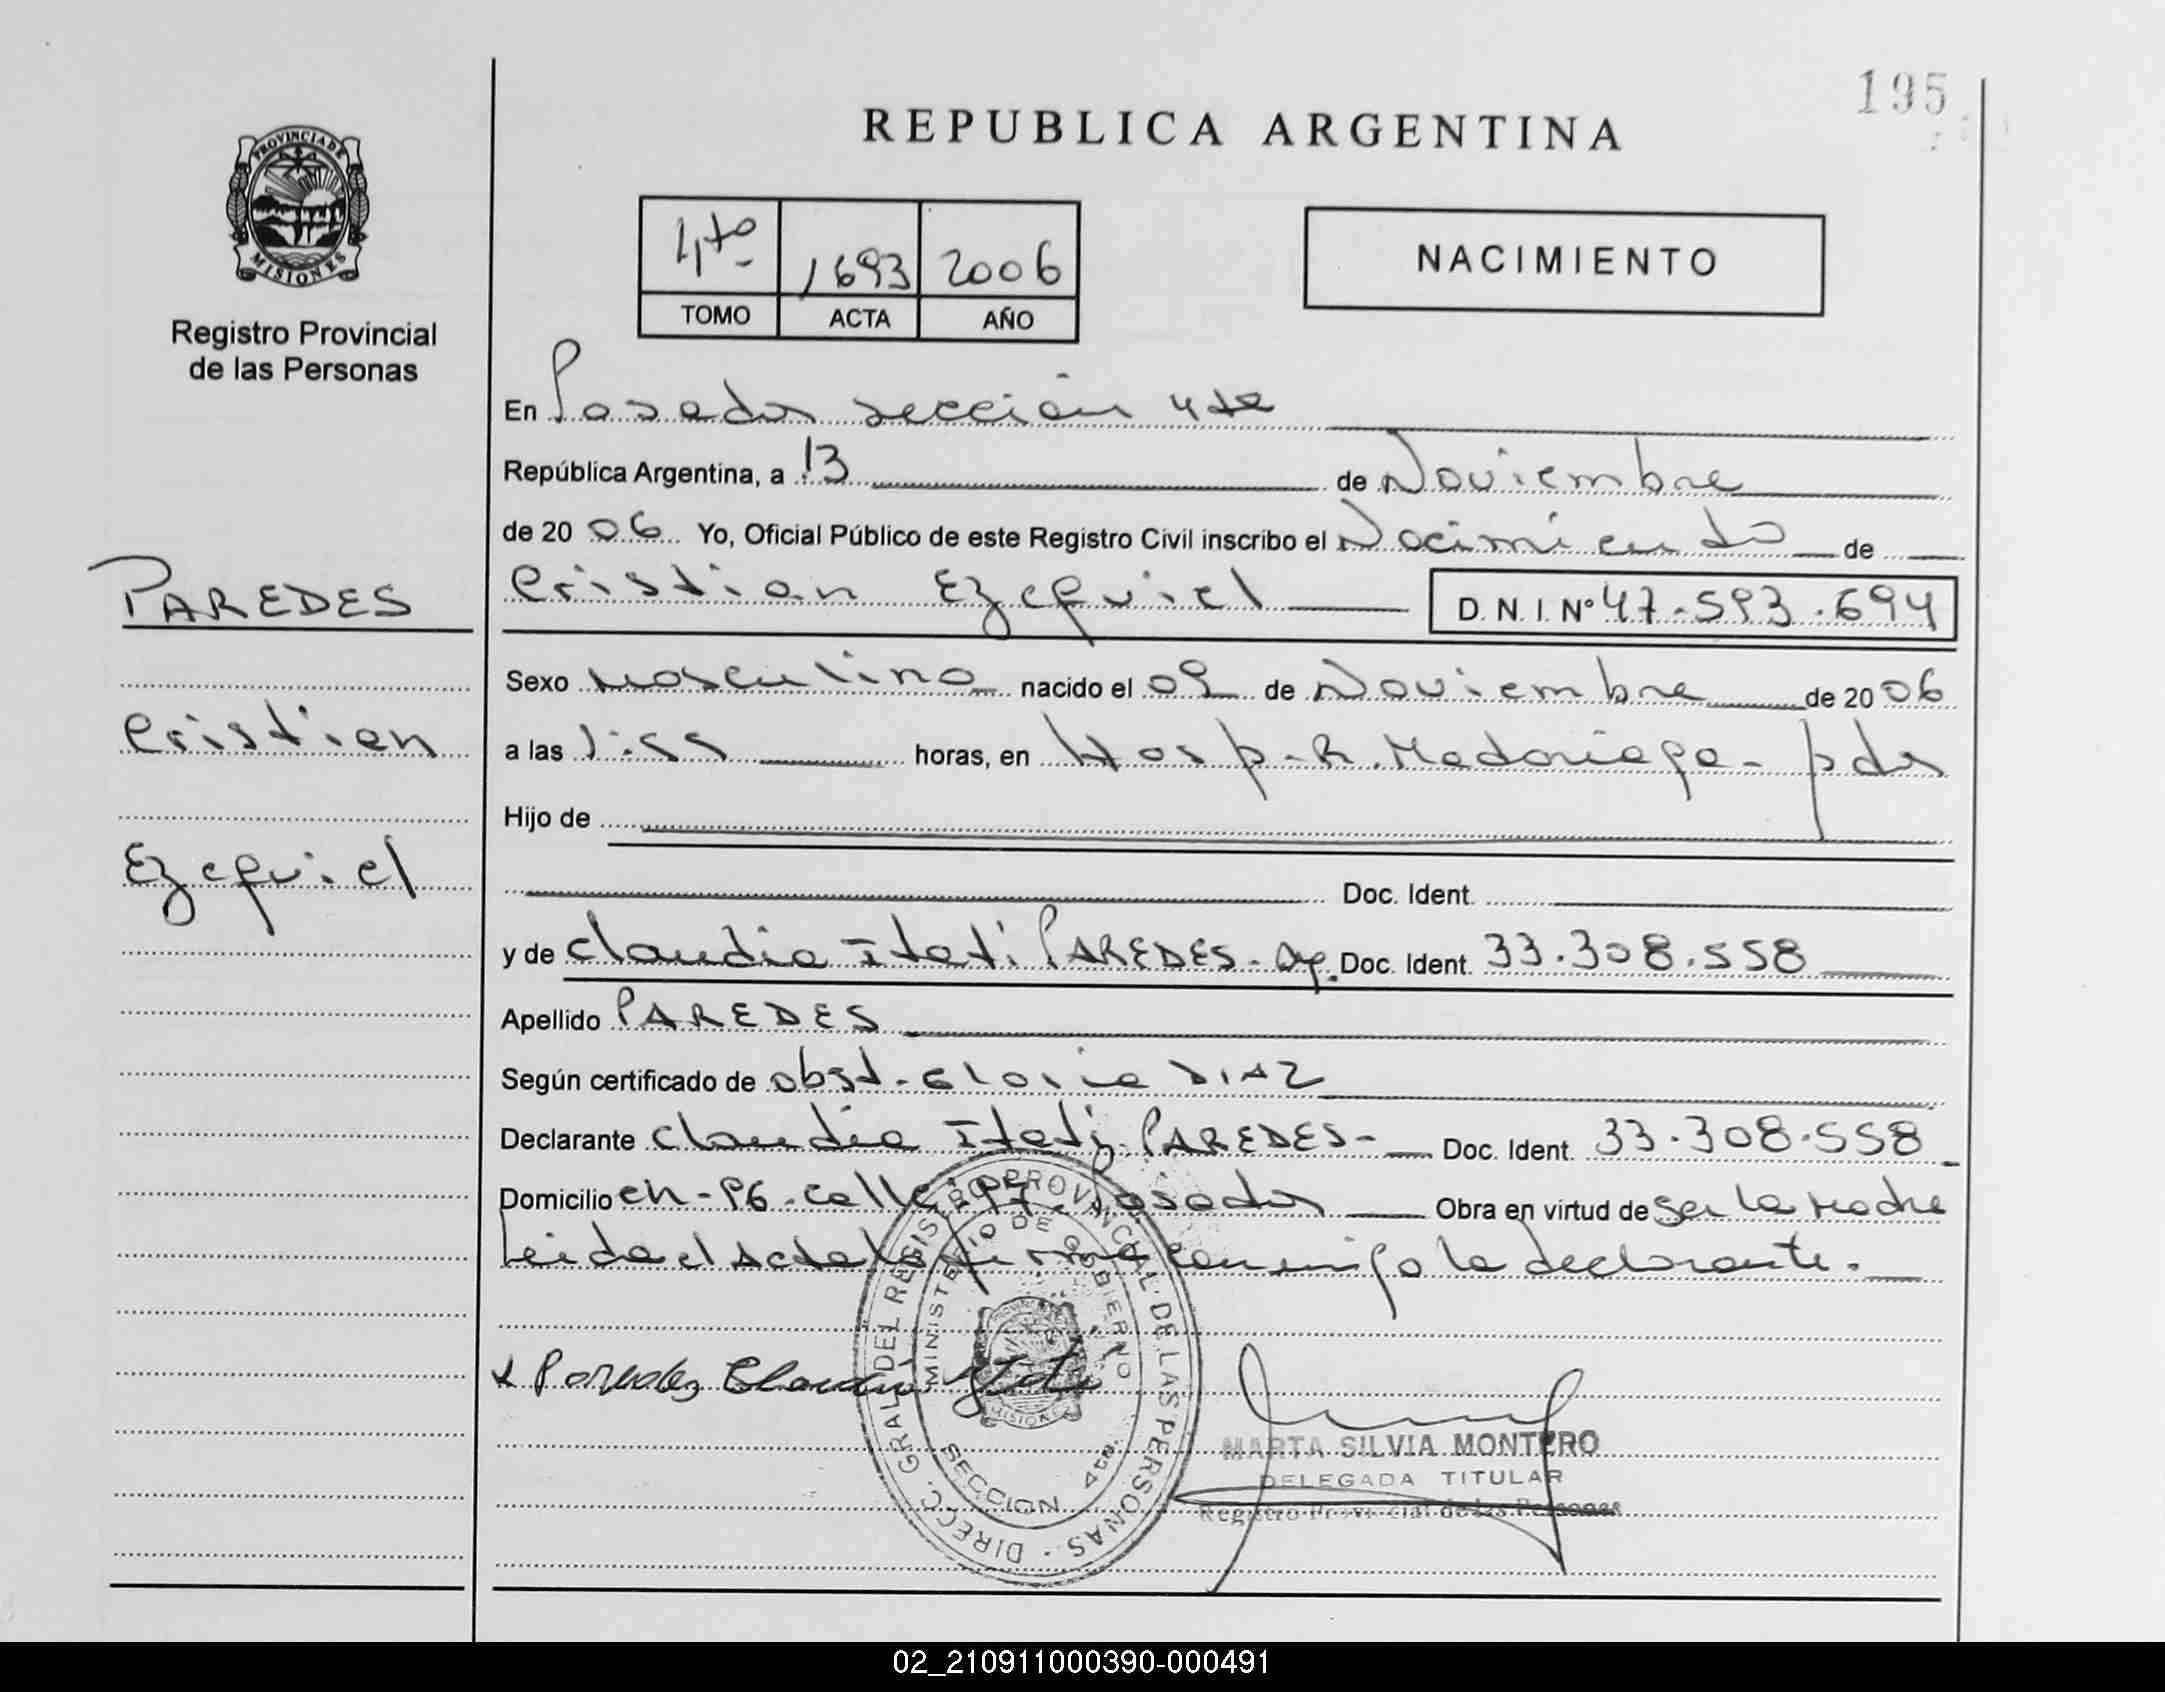 195
REPUBLICA ARGENTINA
PROVINCIA DE MISIONES
Registro Provincial
de las Personas
4to 1693 2006
TOMO ACTA AÑO
NACIMIENTO
En Posadas sección 4ta
República Argentina, a 13 de Noviembre
de 2006 Yo, Oficial Público de este Registro Civil inscribo el Nacimiento de
Cristian Ezequiel D.N.I. Nº 47.593.694
PAREDES
Cristian
Ezequiel
Sexo Masculino nacido el 09 de Noviembre de 2006
a las 1:55 horas, en Hosp. R. Madariaga - pdas
Hijo de
Doc. Ident.
y de Claudia Itati PAREDES - Doc. Ident. 33.308.558
Apellido PAREDES
Según certificado de obst. Gloria DIAZ
Declarante Claudia Itati PAREDES - Doc. Ident. 33.308.558
Domicilio en - Posadas Obra en virtud de Ser la Madre
Leida el Acta la firma conmigo la declarante.
Paredez Claudia
DIRECC. GRAL DEL REGISTRO PROVINCIAL DE LAS PERSONAS
MINISTERIO DE GOBIERNO
MISIONES
SECCION 4ta.
MARTA SILVIA MONTERO
DELEGADA TITULAR
Registro Provincial de las Personas
02_210911000390-000491